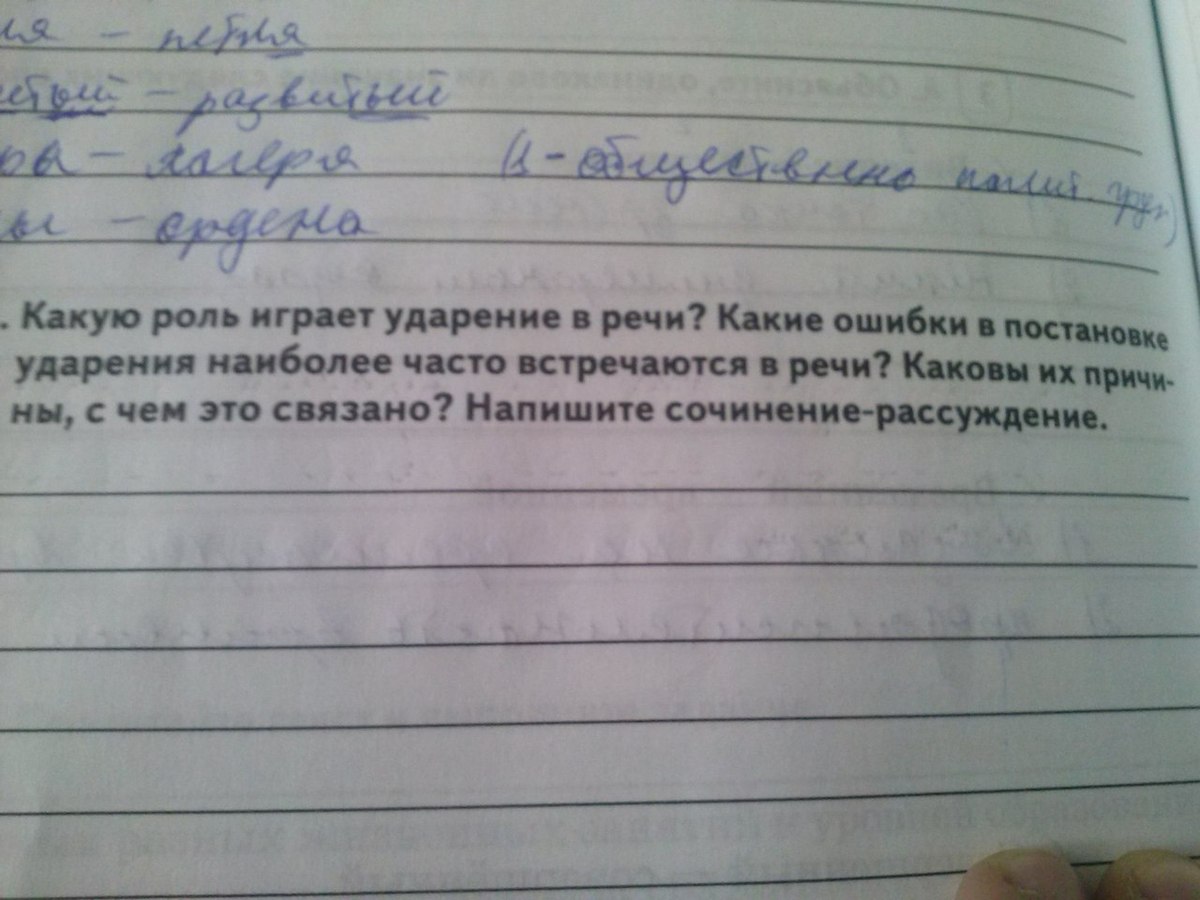 ля – петля
итый – развитый
ры – лагеря (1 – общественно полит. груп)
ны – ордена
. Какую роль играет ударение в речи? Какие ошибки в постановке
ударения наиболее часто встречаются в речи? Каковы их причи-
ны, с чем это связано? Напишите сочинение-рассуждение.